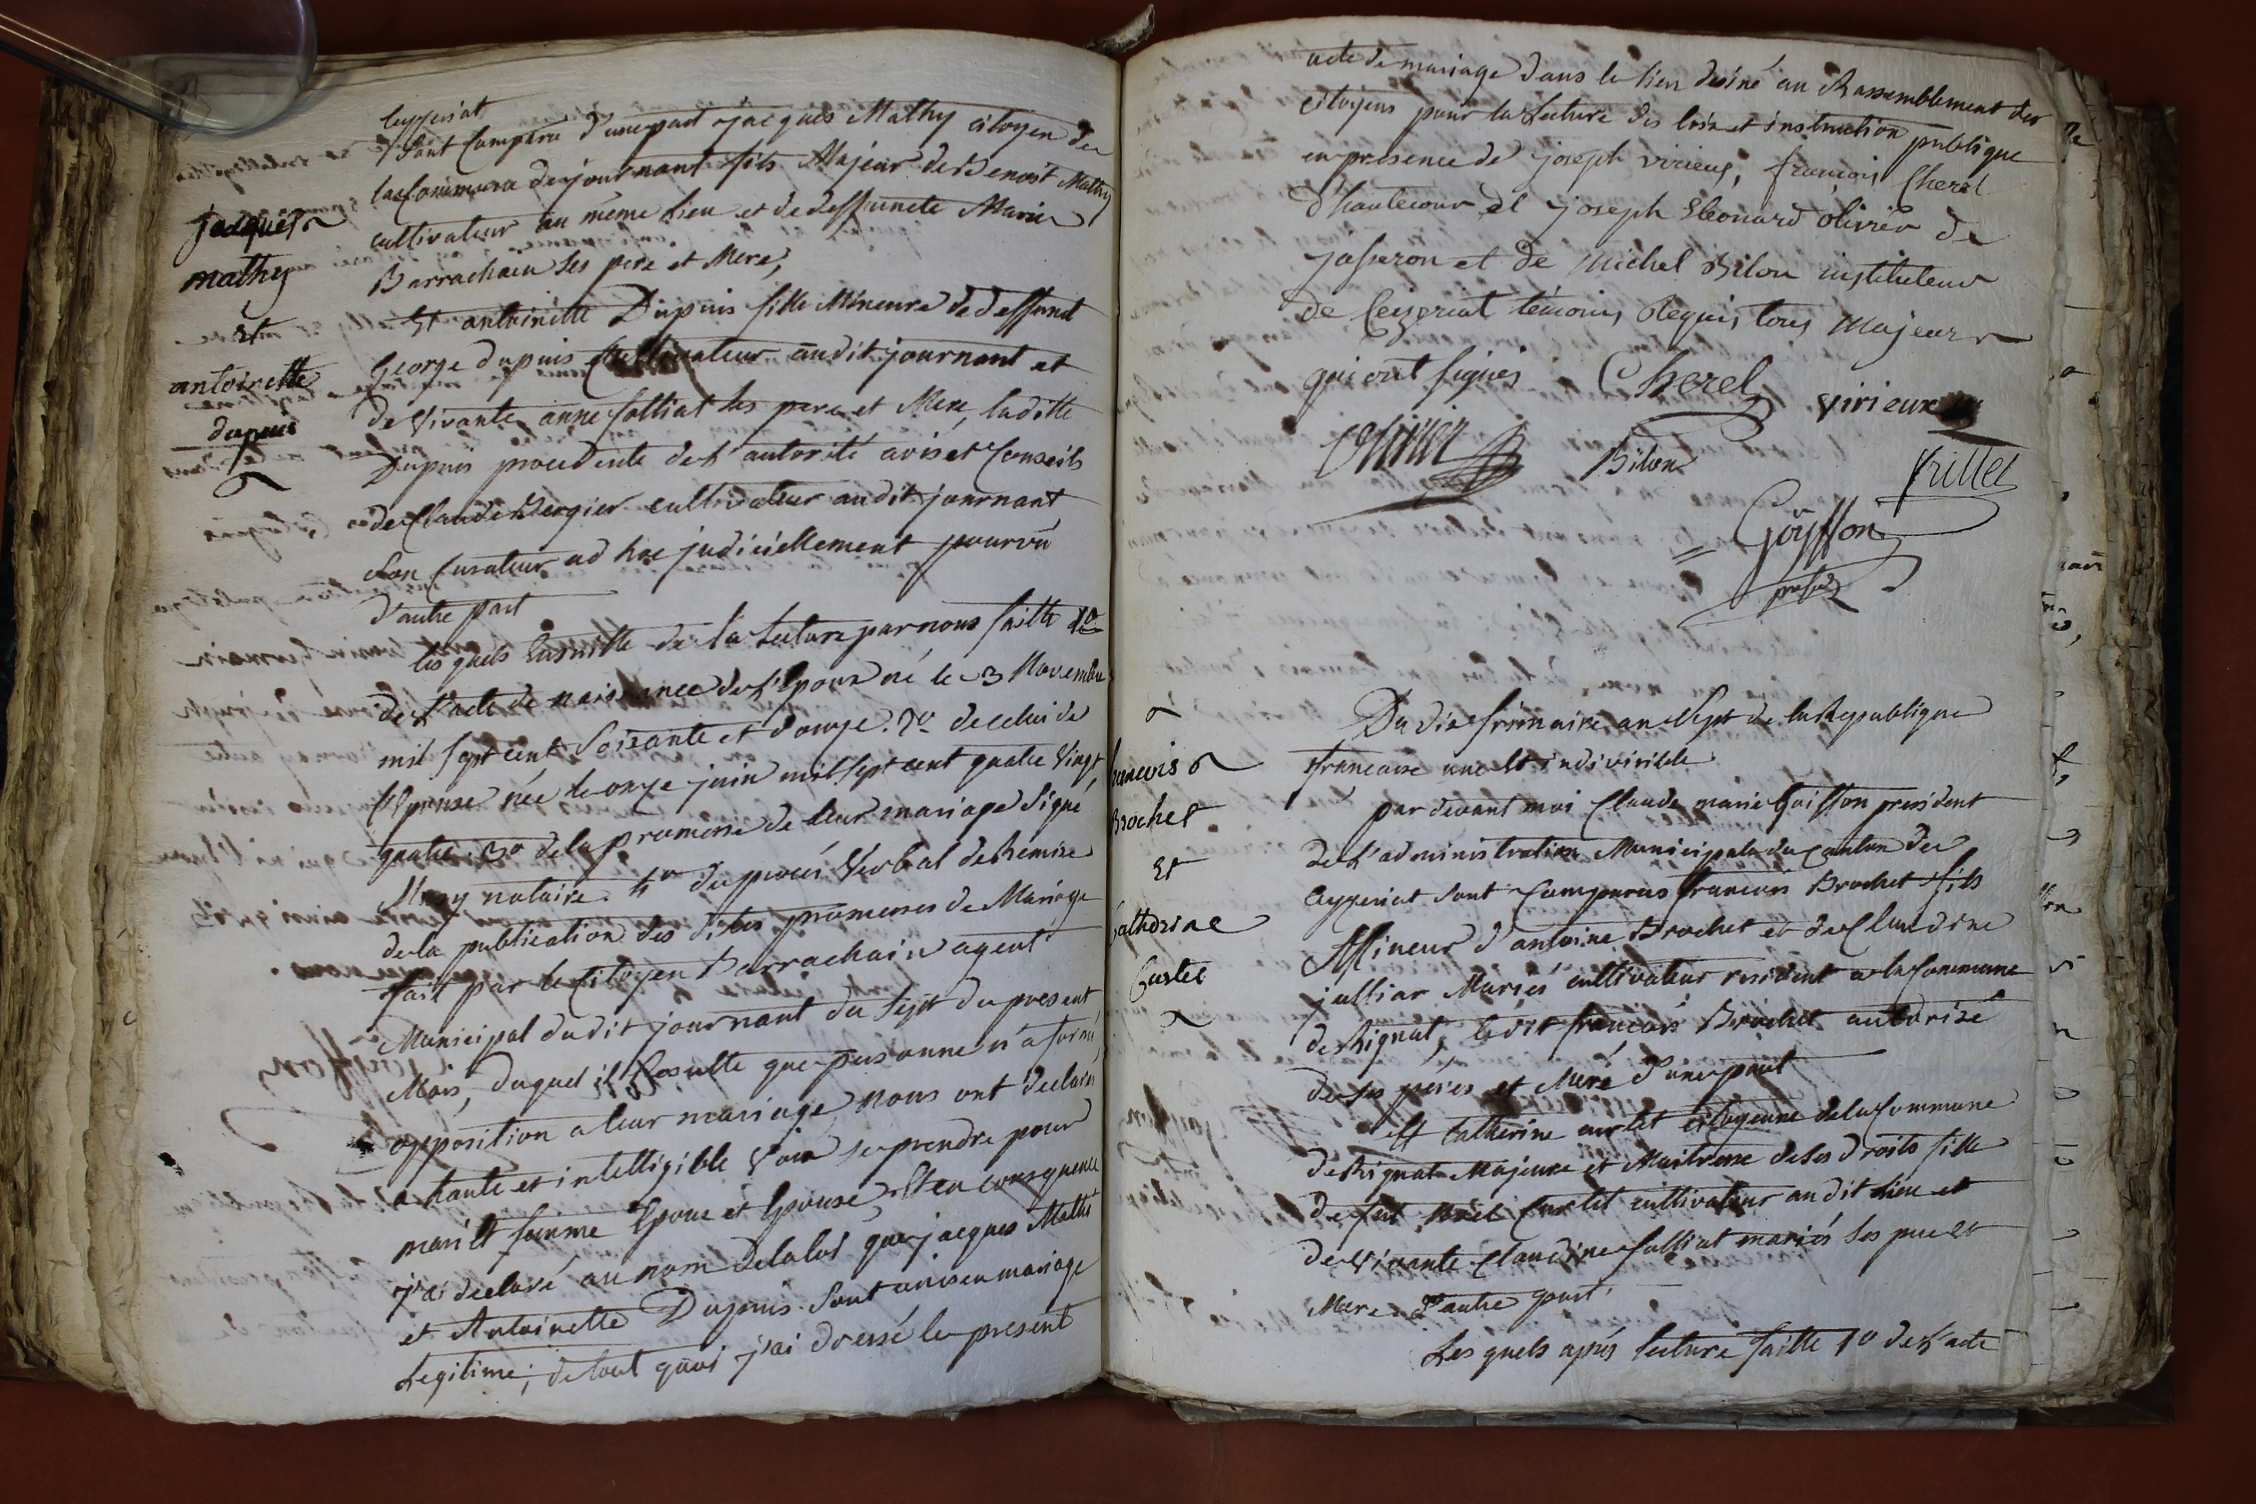 Ceyzeriat
Sont Comparu d'une part jacques Mathy citoyen de
la Commune de journant fils Majeur de Benoist Mathy
cultivateur au même lieu et de deffuncte Marie
Barrachain ses pere et Mere,
jacques
mathy
et
antoinette
dupuis
Et antoinette Dupuis fille Mineure de deffunct
George dupuis Cultivateur audit journant et
de vivante anne folliat ses pere et Mere, laditte
Dupuis procedente de l'autorité avis et Conseils
de Claude Vergier cultivateur audit journant
Son Curateur ad hoc judiciellement pourvû
d'autre part
les quels Ensuitte de la Lecture par nous faitte 1º
de L'acte de naissance de L'Epoux né le 3 Novembre
mil sept cent Soixante et douze. 2º de celui de
l'Epouse née le onze juin mil sept cent quatre Vingt
quatre 3º de la promesse de leur mariage Signé
notaire. 4º du procés Verbal de Remise
de la publication des dites promesses de Mariage
fait par le Citoyen Barrachain agent
Municipal dudit journant du Sept du present
Mois, duquel il Resulte que personne n'a formé
opposition a leur mariage, nous ont declarés
a haute et intelligible voix se prendre pour
mari et femme Epoux et Epouse, Et en consequence
j'ai declaré au nom de la loi que jacques Mathi
et Antoinette Dupuis Sont unis en mariage
Legitime; de tout quoi j'ai dressé le present
acte de mariage dans le lieu desiné au Rassemblement des
citoyens pour la Lecture des loix et instruction publique
en presence de joseph virieux, françois Cherel
d'hautecour et joseph Leonard Olivier de
jasseron et de Michel Bilon instituteur
de Ceyzeriat témoins Requis tous Majeurs
qui ont signés
Cherel
virieux
Olivier
Bilon
frillet
Goÿffon
presid
Du dix frimaire an Sept de la Republique
francaise une et indivisible
francois
Brochet
Et
Catherine
Curlet
par devant moi Claude marie Goiffon president
de L'administration Municipale du Canton de
Ceyzeriat Sont Comparus francois Brochet fils
Mineur d'antoine Brochet et de Claudine
julliar Mariés cultivateur resident a la Commune
de Rignat, le dit françois Brochet autorisé
de ses peres et Mere d'une part
Et Catherine curlet citoyenne de la Commune
de Rignat Majeure et Maitresse de Ses Droits fille
de feu Noël Curlet cultivateur audit Lieu et
de Vivante Claudine folliat mariés ses pere et
Mere d'autre part,
Les quels après lecture faitte 1º de L'acte